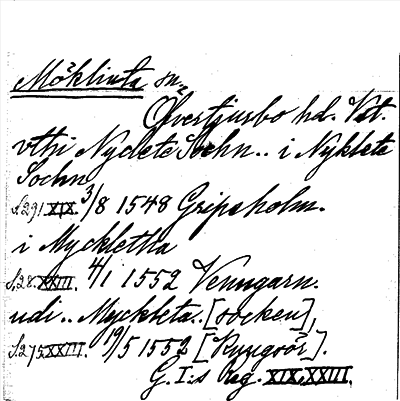 Möklinta sn
Övertjurbo hd. Vst.
vthi Nyclete Sochn.. i Nyklete
Sochn
S.291 XIX. 3/8 1548 Gripsholm.
i Myckletha
S.28. XXIII. 4/1 1552 Venngarn.
udi.. Myckleta..[socken],
S.275 XXIII. 19/5 1552 [Ryngsör].
G. I:s reg. XIX, XXIII.